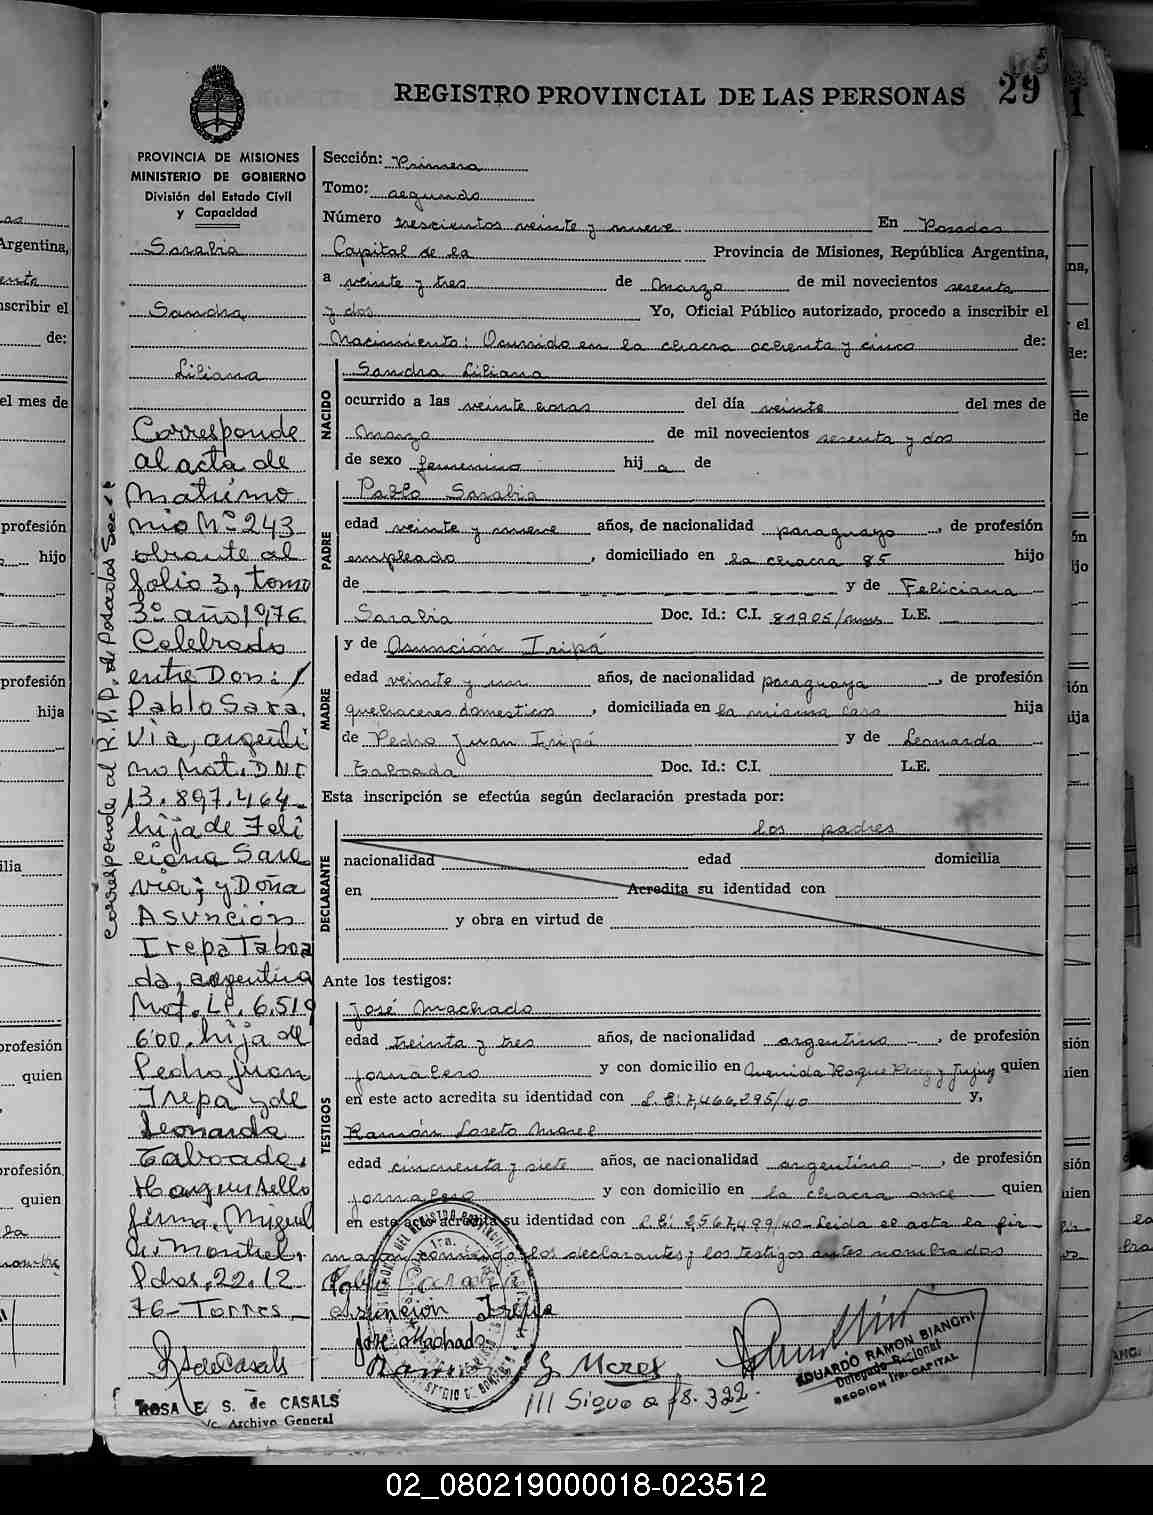 REGISTRO PROVINCIAL DE LAS PERSONAS 29
PROVINCIA DE MISIONES
MINISTERIO DE GOBIERNO
División del Estado Civil
y Capacidad
Sarabia
Sandra
Liliana
Corresponde
al acta de
Matrimo
nio Nº 243
obrante al
folio 3, tomo
3º año 1976
Celebrado
entre Don: /
Pablo Sara
via, argenti
no Mat. DNI
13.897.464
hijo de Feli
ciana Sara
via; y Doña
Asunción
Irepa Taboa
da, argentina
Mat. LC. 6.519
600. hija de
Pedro Juan
Irepa y de
Leonarda
Taboada.
Hay un sello
firma. Miguel
A. Montiel.
Pdas. 22.12
76- Torres
corresponde al R.P.P. de Posadas Sec 1ª
R S de Casals
ROSA E. S. de CASALS
a/c. Archivo General
Sección: Primera
Tomo: segundo
Número trescientos veinte y nueve En Posadas
Capital de la Provincia de Misiones, República Argentina,
a veinte y tres de Marzo de mil novecientos sesenta
y dos Yo, Oficial Público autorizado, procedo a inscribir el
Nacimiento: Ocurrido en la chacra ochenta y cinco de:
NACIDO
Sandra Liliana
ocurrido a las veinte horas del día veinte del mes de
Marzo de mil novecientos sesenta y dos
de sexo femenino hij a de
PADRE
Pablo Sarabia
edad veinte y nueve años, de nacionalidad paraguayo, de profesión
empleado, domiciliado en la chacra 85 hijo
de y de Feliciana
Sarabia Doc. Id.: C.I. 81905/mnes L.E.
MADRE
y de Asunción Iripá
edad veinte y un años, de nacionalidad paraguaya, de profesión
quehaceres domesticos, domiciliada en la misma casa hija
de Pedro Juan Iripá y de Leonarda
Taboada Doc. Id.: C.I. L.E.
Esta inscripción se efectúa según declaración prestada por:
DECLARANTE
los padres
nacionalidad edad domicilia
en Acredita su identidad con
y obra en virtud de
Ante los testigos:
TESTIGOS
José Machado
edad treinta y tres años, de nacionalidad argentino, de profesión
jornalero y con domicilio en Avenida Roque Perez y Jujuy quien
en este acto acredita su identidad con L.E: 7,466,295/40 y,
Ramón Loreto Morel
edad cincuenta y siete años, de nacionalidad argentino, de profesión
jornalero y con domicilio en la chacra once quien
en este acto acredita su identidad con L.E: 2,567,499/40- Leida el acta la fir-
maron conmigo los declarantes y los testigos antes nombrados
Pablo Sarabia
Asuncion Irepa
Jose Machado
Ramon L Morel
/// Sigue a fs. 322.
EDUARDO RAMON BIANCHI
Delegado Regional
SECCION 1ra. CAPITAL
02_080219000018-023512